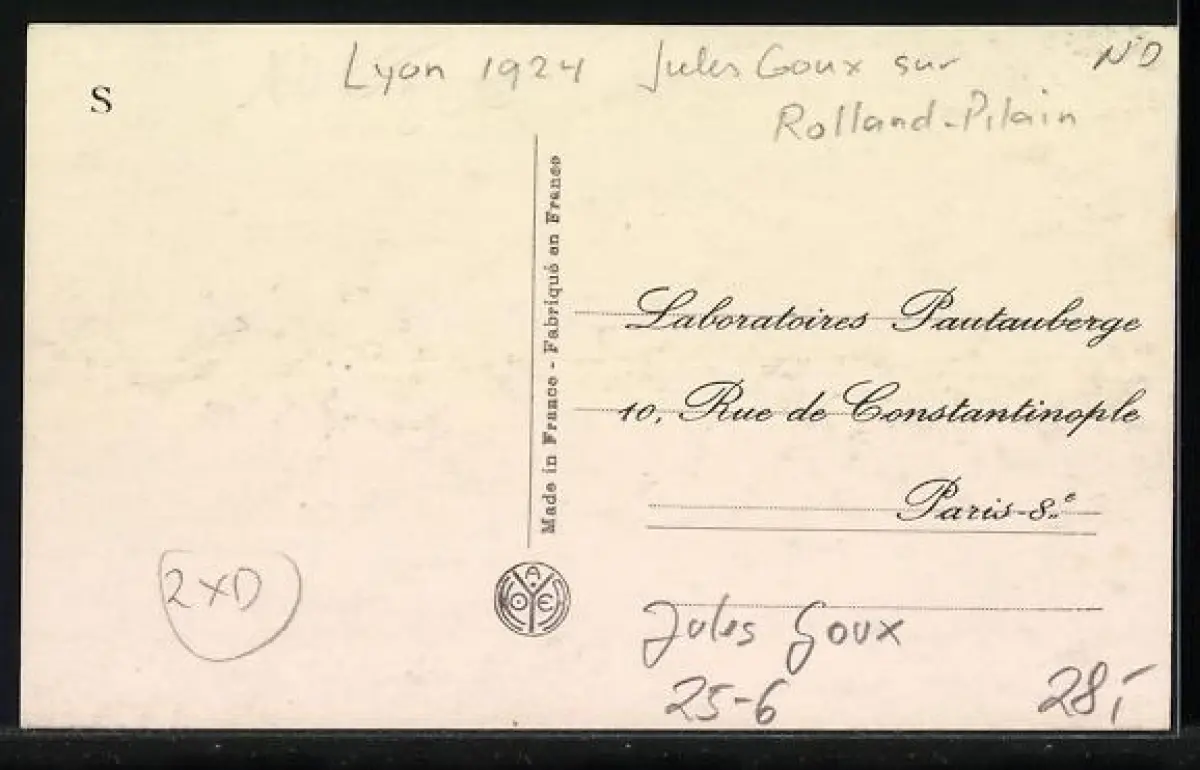 Lyon 1924 Jules Goux sur N'D
Rolland-Pilain
S
Made in France - Fabriqué en France
Laboratoires Pautauberge
10, Rue de Constantinople
Paris-8e
2XD
Jules Goux
25-6
28,-